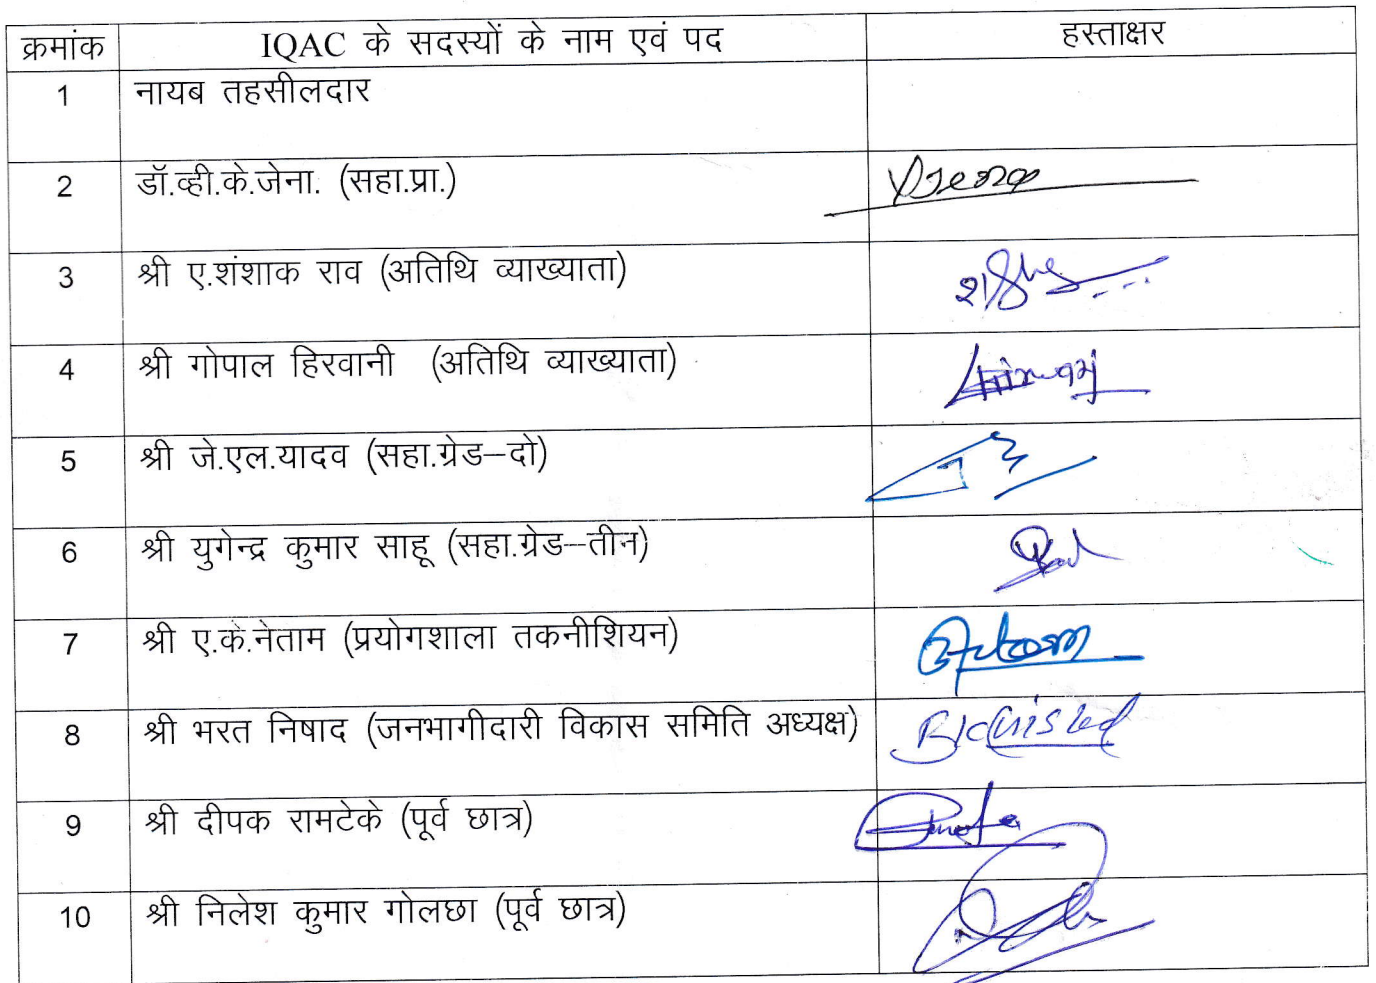 क्रमांक IQAC के सदस्यों के नाम एवं पद हस्ताक्षर
1 नायब तहसीलदार
2 डॉ.व्ही.के.जेना. (सहा.प्रा.)
3 श्री ए.शंशाक राव (अतिथि व्याख्याता)
4 श्री गोपाल हिरवानी (अतिथि व्याख्याता)
5 श्री जे.एल.यादव (सहा.ग्रेड–दो)
6 श्री युगेन्द्र कुमार साहू (सहा.ग्रेड–तीन)
7 श्री ए.के.नेताम (प्रयोगशाला तकनीशियन)
8 श्री भरत निषाद (जनभागीदारी विकास समिति अध्यक्ष)
9 श्री दीपक रामटेके (पूर्व छात्र)
10 श्री निलेश कुमार गोलछा (पूर्व छात्र)